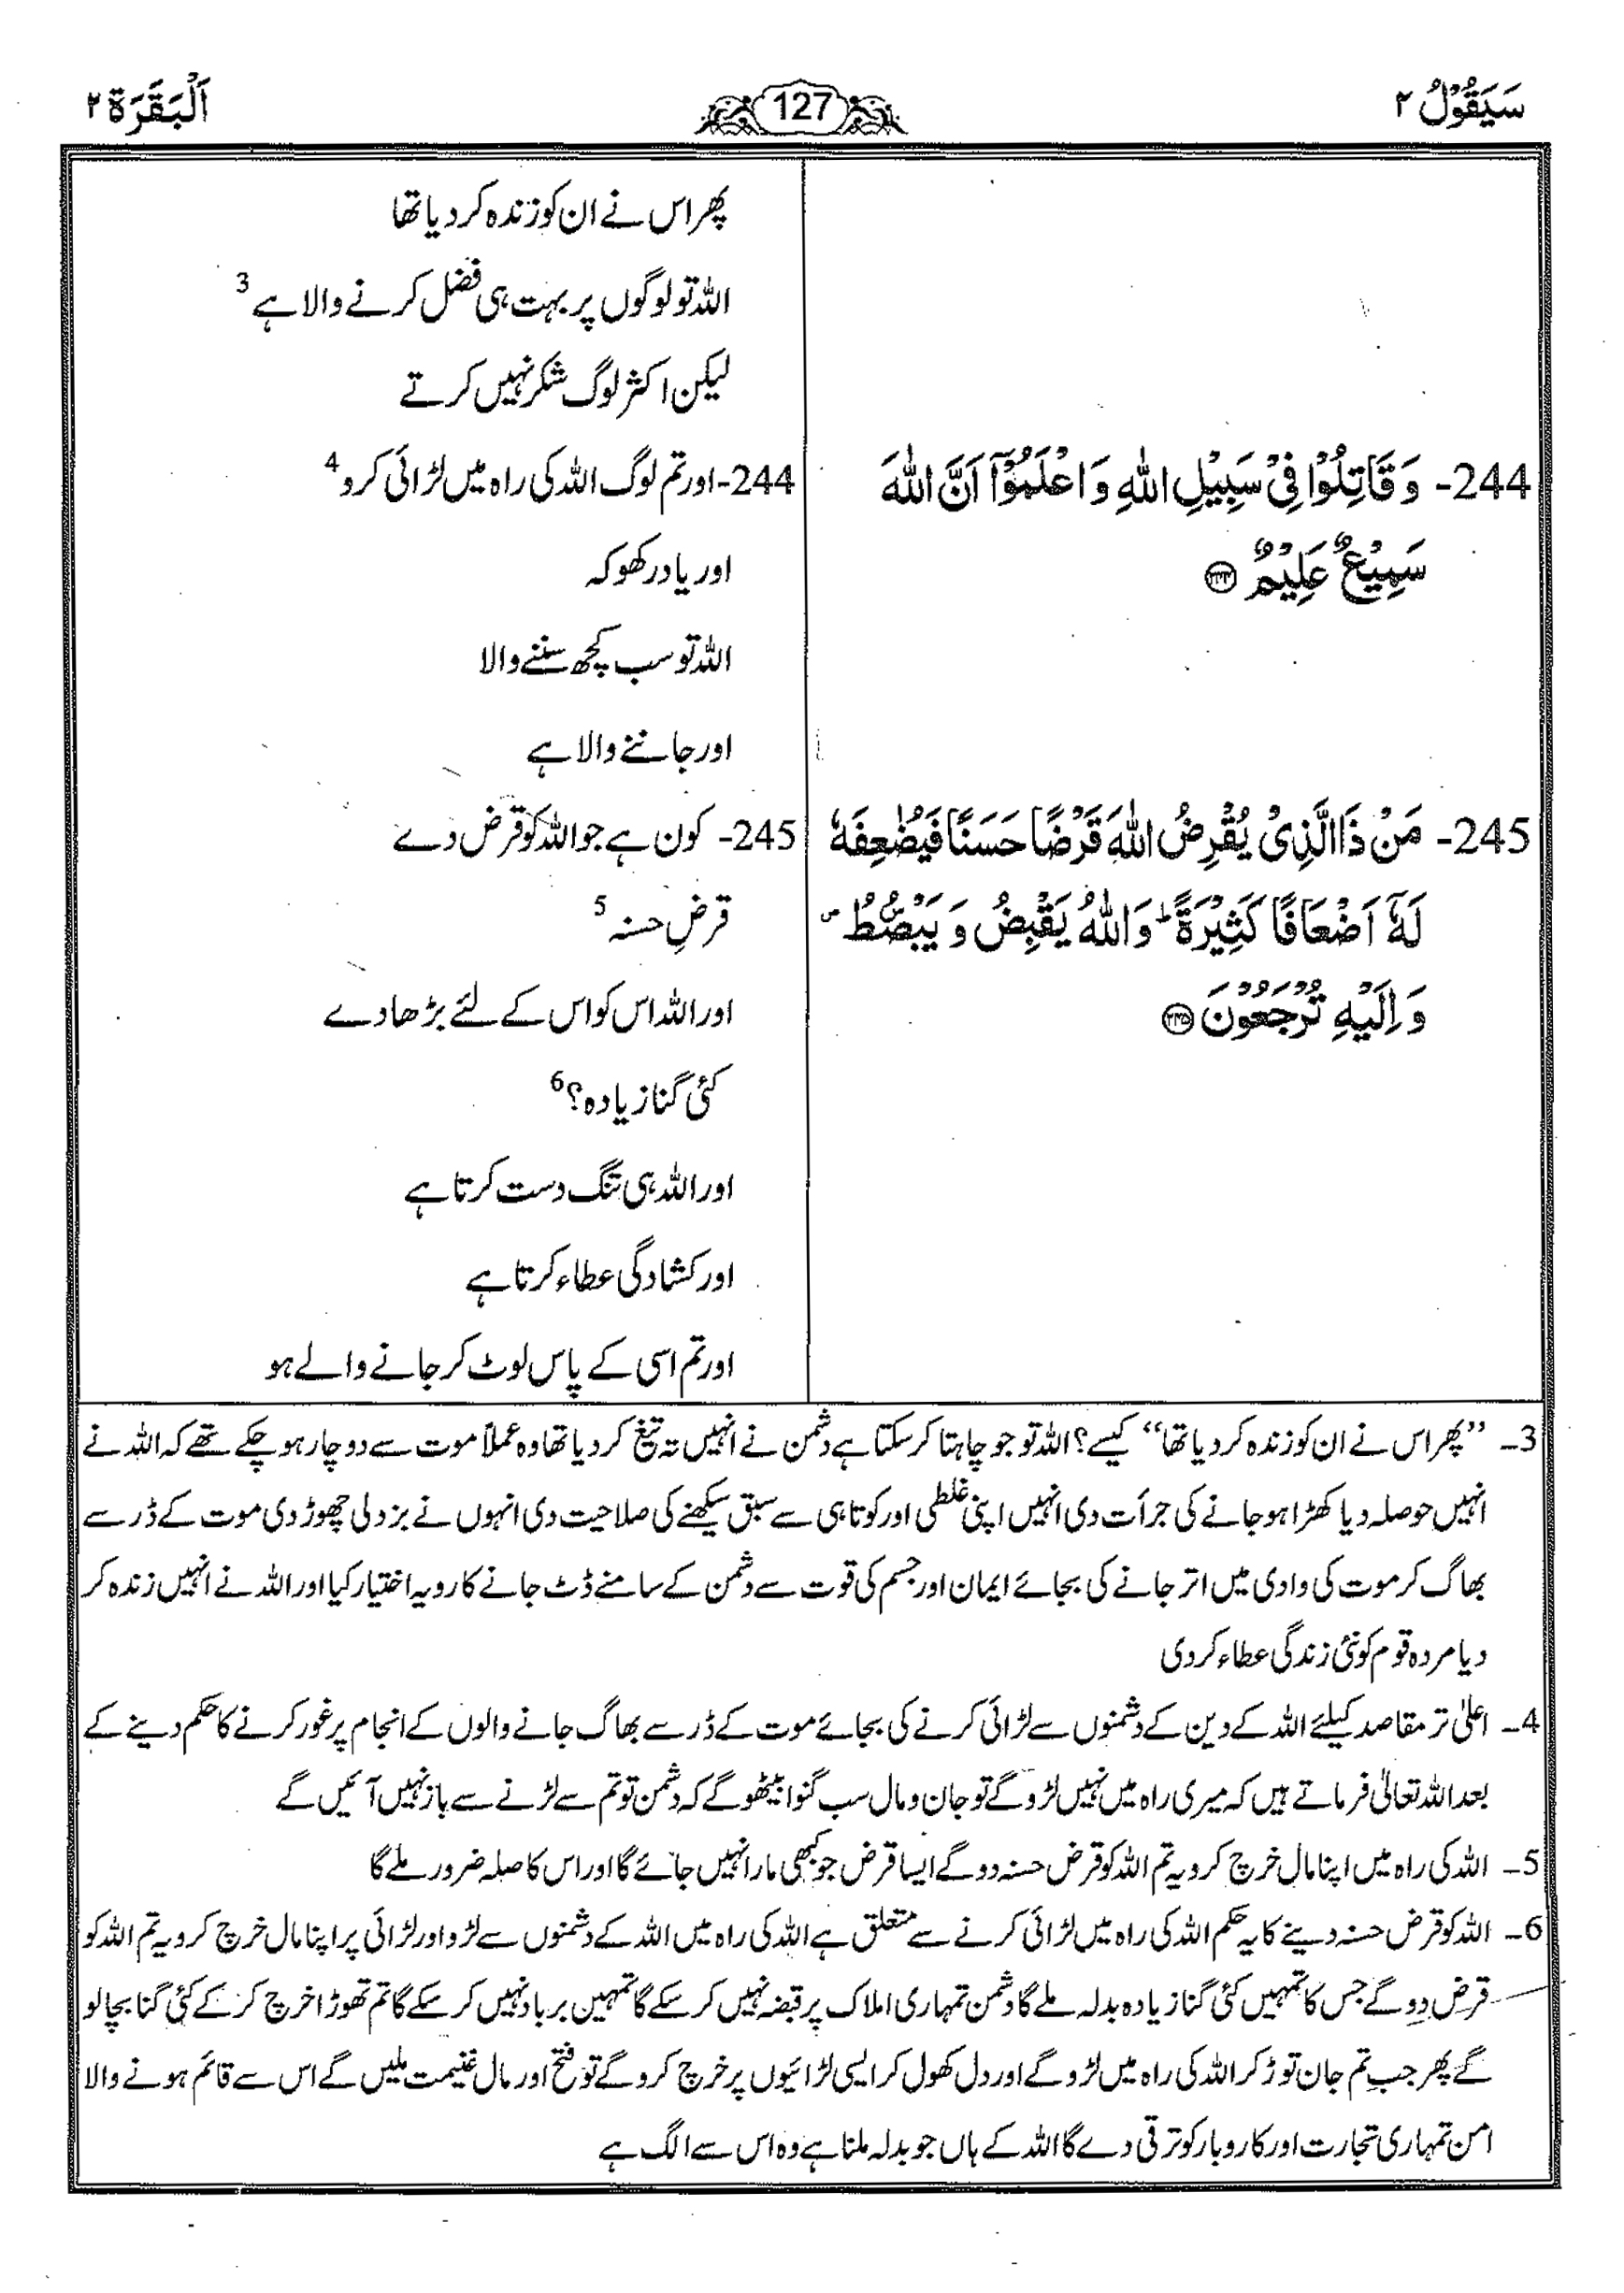 سَيَقُوْلُ ٢
127
اَلْبَقَرَة ٢
244- وَقَاتِلُوْا فِىْ سَبِيْلِ اللّٰهِ وَاعْلَمُوْٓا اَنَّ اللّٰهَ
سَمِيْعٌ عَلِيْمٌ ﴿٢٤٤﴾
245- مَنْ ذَا الَّذِىْ يُقْرِضُ اللّٰهَ قَرْضًا حَسَنًا فَيُضٰعِفَهٗ
لَهٗٓ اَضْعَافًا كَثِيْرَةً ؕ وَاللّٰهُ يَقْبِضُ وَيَبْصُۜطُ ۪
وَاِلَيْهِ تُرْجَعُوْنَ ﴿٢٤٥﴾
پھر اس نے ان کو زندہ کر دیا تھا
اللہ تو لوگوں پر بہت ہی فضل کرنے والا ہے 3
لیکن اکثر لوگ شکر نہیں کرتے
244- اور تم لوگ اللہ کی راہ میں لڑائی کرو 4
اور یاد رکھو کہ
اللہ تو سب کچھ سننے والا
اور جاننے والا ہے
245- کون ہے جو اللہ کو قرض دے
قرضِ حسنہ 5
اور اللہ اس کو اس کے لئے بڑھا دے
کئی گنا زیادہ؟ 6
اور اللہ ہی تنگ دست کرتا ہے
اور کشادگی عطاء کرتا ہے
اور تم اسی کے پاس لوٹ کر جانے والے ہو
3۔ ”پھر اس نے ان کو زندہ کر دیا تھا“ کیسے؟ اللہ تو جو چاہتا کر سکتا ہے دشمن نے انہیں تہ تیغ کر دیا تھا وہ عملاً موت سے دو چار ہو چکے تھے کہ اللہ نے
انہیں حوصلہ دیا کھڑا ہو جانے کی جرأت دی انہیں اپنی غلطی اور کوتاہی سے سبق سیکھنے کی صلاحیت دی انہوں نے بزدلی چھوڑ دی موت کے ڈر سے
بھاگ کر موت کی وادی میں اتر جانے کی بجائے ایمان اور جسم کی قوت سے دشمن کے سامنے ڈٹ جانے کا رویہ اختیار کیا اور اللہ نے انہیں زندہ کر
دیا مردہ قوم کو نئی زندگی عطاء کر دی
4۔ اعلیٰ تر مقاصد کیلئے اللہ کے دین کے دشمنوں سے لڑائی کرنے کی بجائے موت کے ڈر سے بھاگ جانے والوں کے انجام پر غور کرنے کا حکم دینے کے
بعد اللہ تعالیٰ فرماتے ہیں کہ میری راہ میں نہیں لڑو گے تو جان و مال سب گنوا بیٹھو گے کہ دشمن تو تم سے لڑنے سے باز نہیں آئیں گے
5۔ اللہ کی راہ میں اپنا مال خرچ کرو یہ تم اللہ کو قرض حسنہ دو گے ایسا قرض جو کبھی مارا نہیں جائے گا اور اس کا صلہ ضرور ملے گا
6۔ اللہ کو قرض حسنہ دینے کا یہ حکم اللہ کی راہ میں لڑائی کرنے سے متعلق ہے اللہ کی راہ میں اللہ کے دشمنوں سے لڑو اور لڑائی پر اپنا مال خرچ کرو یہ تم اللہ کو
قرض دو گے جس کا تمہیں کئی گنا زیادہ بدلہ ملے گا دشمن تمہاری املاک پر قبضہ نہیں کر سکے گا تمہین برباد نہیں کر سکے گا تم تھوڑا خرچ کر کے کئی گنا بچا لو
گے پھر جب تم جان توڑ کر اللہ کی راہ میں لڑو گے اور دل کھول کر ایسی لڑائیوں پر خرچ کرو گے تو فتح اور مال غنیمت ملیں گے اس سے قائم ہونے والا
امن تمہاری تجارت اور کاروبار کو ترقی دے گا اللہ کے ہاں جو بدلہ ملنا ہے وہ اس سے الگ ہے